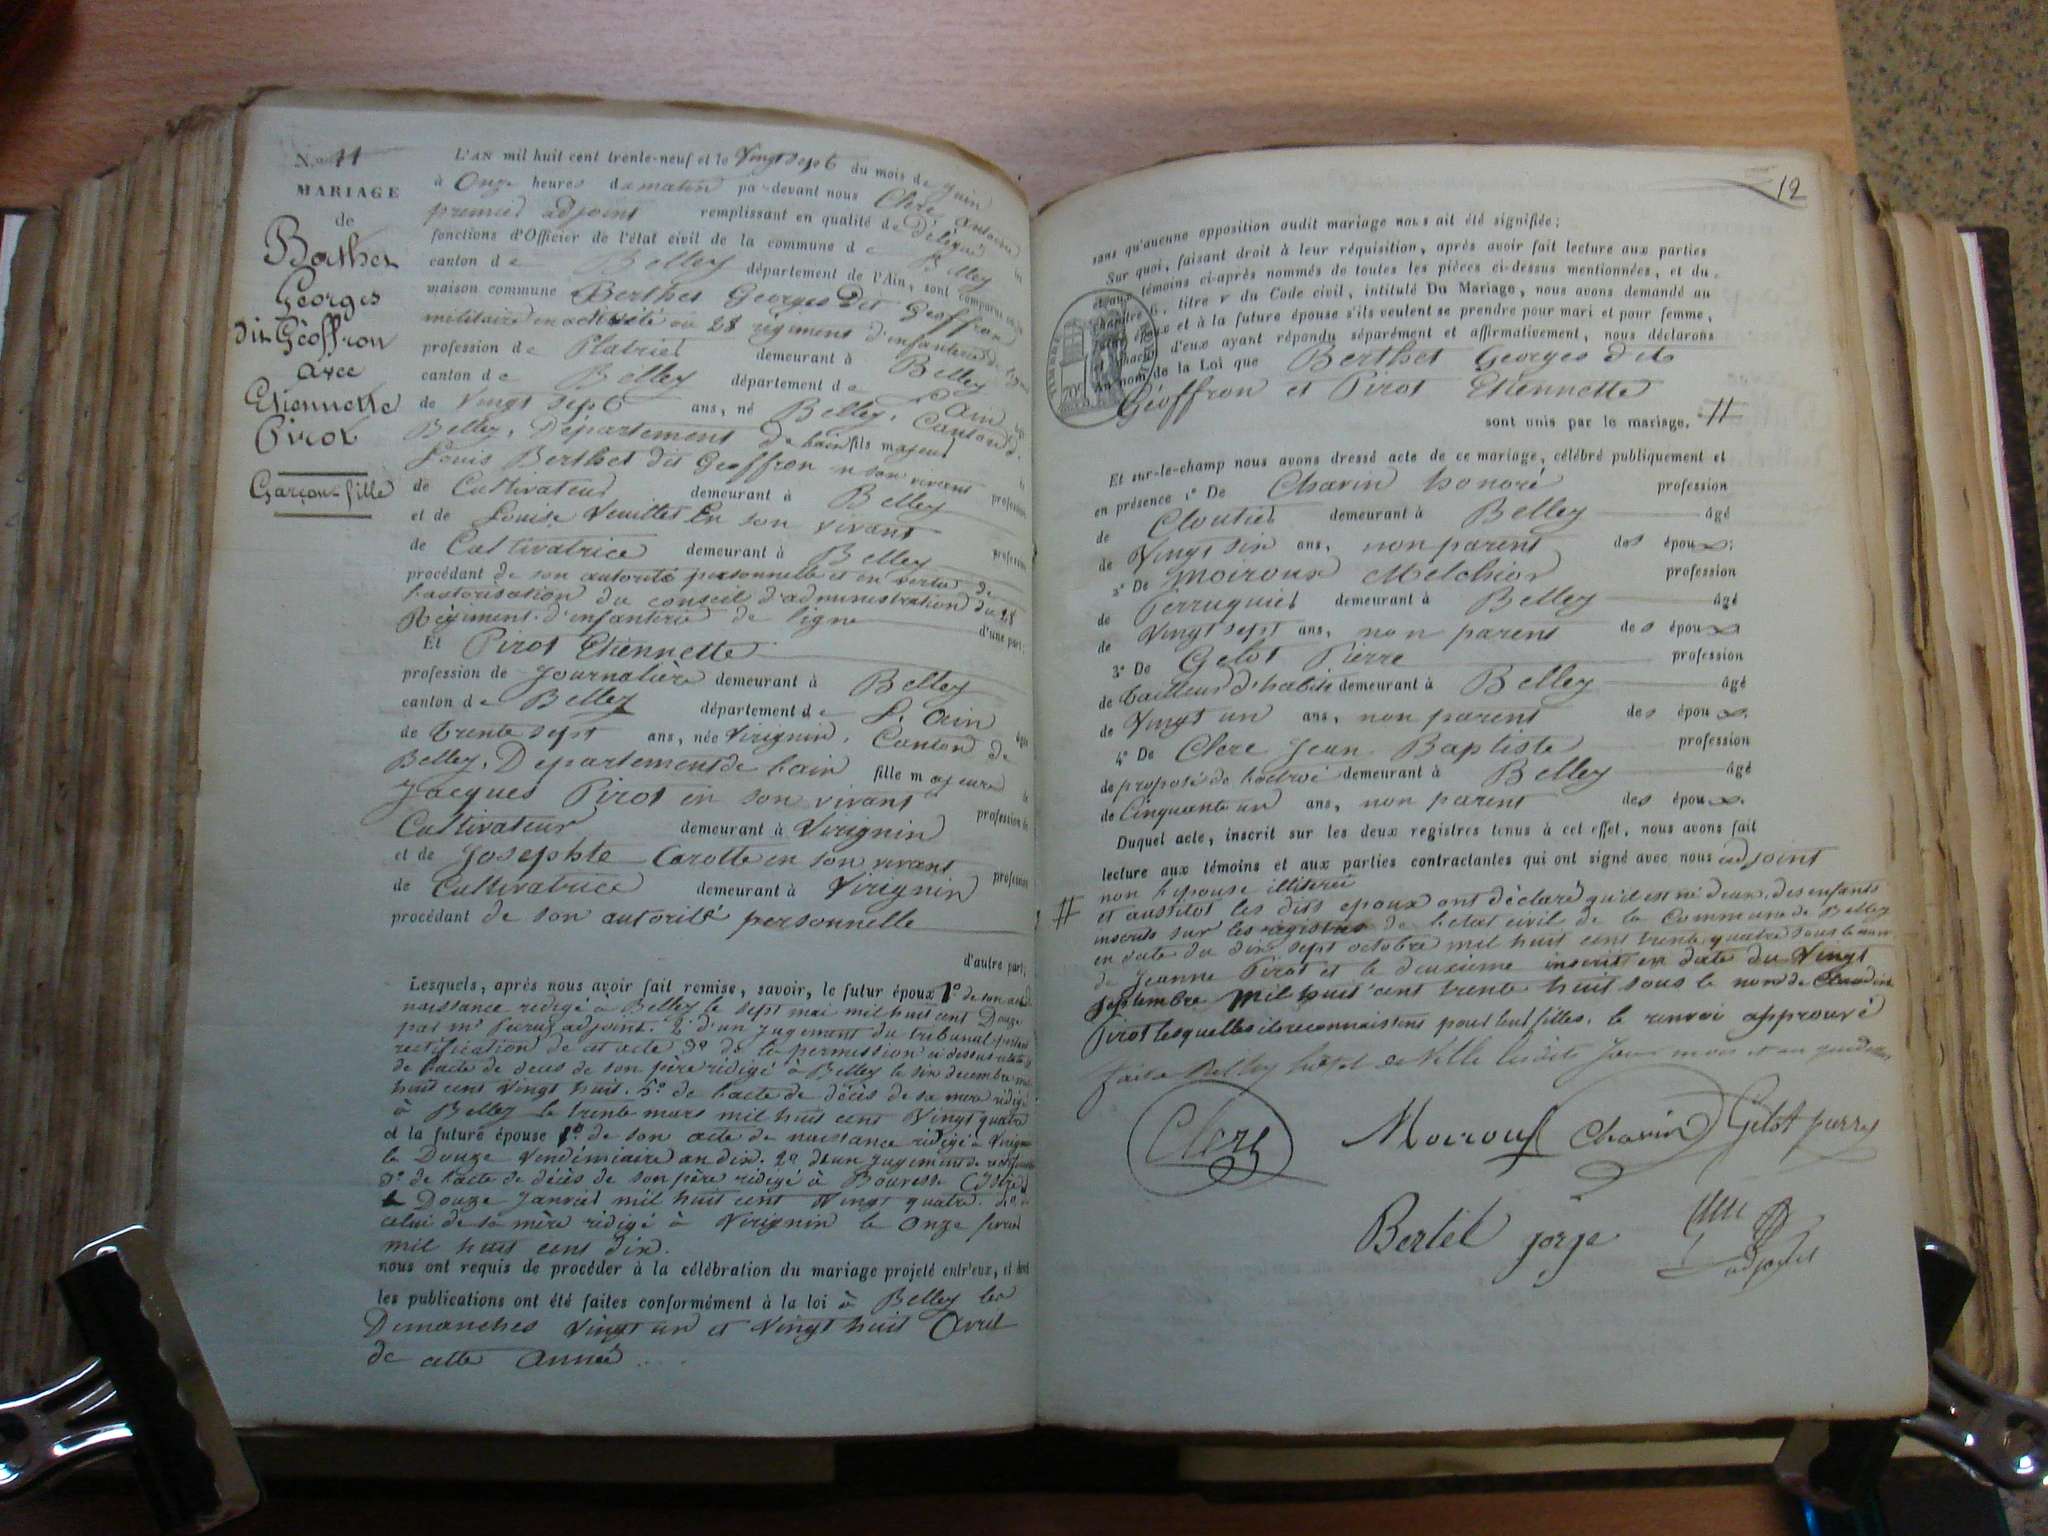 N.º 11
MARIAGE
de
Berthet
Georges
dit Géoffron
avec
Etiennette
Pirot
Garçon-fille
L'AN mil huit cent trente-neuf et le Vingt sept du mois de Juin
à Onze heures du matin par-devant nous Clerc Antoine
premier adjoint remplissant en qualité de délégué les
fonctions d'Officier de l'état civil de la commune de Belley
canton de Belley département de l'Ain, sont comparus en la
maison commune Berthet Georges Dit Geoffron
militaire en activité au 28 régiment d'infanterie de ligne
profession de Platrier demeurant à Belley
canton de Belley département de L'Ain
de Vingt sept ans, né Belley, Canton de
Belley, Département de lain fils majeur de
Louis Berthet dit Geoffron en son vivant profession
de Cultivateur demeurant à Belley
et de Louise Vuillet En son vivant profession
de Cultivatrice demeurant à Belley
procédant de son autorité personnelle et en vertu de
l'autorisation du conseil d'administration du 28
Régiment d'infanterie de ligne d'une part;
Et Pirot Etiennette
profession de Journalière demeurant à Belley
canton de Belley département de L'Ain
de trente sept ans, née Virignin, Canton de
Belley, Departement de lain fille majeure de
Jacques Pirot en son vivant profession de
Cultivateur demeurant à Virignin
et de Josephte Carotte en son vivant profession
de Cultivatrice demeurant à Virignin
procédant de son autorité personnelle
d'autre part;
Lesquels, après nous avoir fait remise, savoir, le futur époux 1º de son acte
naissance rédigé à Belley le sept mai mil huit cent Douze
par mr adjoint. 2º d'un jugement du tribunal portant
rectification de cet acte 3º de la permission ci dessus relatée
de l'acte de décès de son père rédigé à Belley le six decembre mil
huit cent vingt huit. 5º de l'acte de décès de sa mère rédigé
à Belley le trente mars mil huit cent Vingt quatre
et la future épouse 1º de son acte de naissance rédigé à Virignin
le Douze Vendémiaire an dix. 2º d'un jugement de rectification
3º de l'acte de décès de son père rédigé à Bouvesse (Isère)
le Douze Janvier mil huit cent Vingt quatre. 4º
celui de sa mère rédigé à Virignin le Onze fevrier
mil huit cent dix.
nous ont requis de procéder à la célébration du mariage projeté entr'eux, et dont
les publications ont été faites conformément à la loi à Belley les
Dimanches Vingt un et Vingt huit Avril
de cette Année
12
sans qu'aucune opposition audit mariage nous ait été signifiée;
Sur quoi, faisant droit à leur réquisition, après avoir fait lecture aux parties
et aux témoins ci-après nommés de toutes les pièces ci-dessus mentionnées, et du
chapitre 6, titre v du Code civil, intitulé Du Mariage, nous avons demandé au
futur époux et à la future épouse s'ils veulent se prendre pour mari et pour femme,
et chacun d'eux ayant répondu séparément et affirmativement, nous déclarons
au nom de la Loi que Berthet Georges dit
Géoffron et Pirot Etiennette
sont unis par le mariage. #
Et sur-le-champ nous avons dressé acte de ce mariage, célébré publiquement et
en présence 1º De Chavin honoré profession
de Cloutier demeurant à Belley âgé
de Vingt six ans, non parent des époux;
2º De Moiroux Melchior profession
de Perruquier demeurant à Belley âgé
de Vingt sept ans, non parent des époux
3º De Gelot Pierre profession
de tailleur d'habits demeurant à Belley âgé
de Vingt un ans, non parent des époux.
4º De Clerc Jean Baptiste profession
de préposé de l'octroi demeurant à Belley âgé
de Cinquante un ans, non parent des époux.
Duquel acte, inscrit sur les deux registres tenus à cet effet, nous avons fait
lecture aux témoins et aux parties contractantes qui ont signé avec nous adjoint
non l'épouse illiterée
# et aussitot les dits epoux ont déclaré qu'il est né deux des enfants
inscrits sur les registres de l'etat civil de la Commune de Belley
en date du dix sept octobre mil huit cent trente quatre sous le nom
de Jeanne Pirot et le deuxième inscrit en date du Vingt
septembre mil huit cent trente huit sous le nom de Claudine
Pirot lesquelles ils reconnaissent pour leur filles. le renvoi approuvé
fait à Belley hôtel de Ville lesdits Jour mois et an que dessus
Clerc Moiroux Chavin Gelot pierre
Bertet jorje Clerc
adjoint